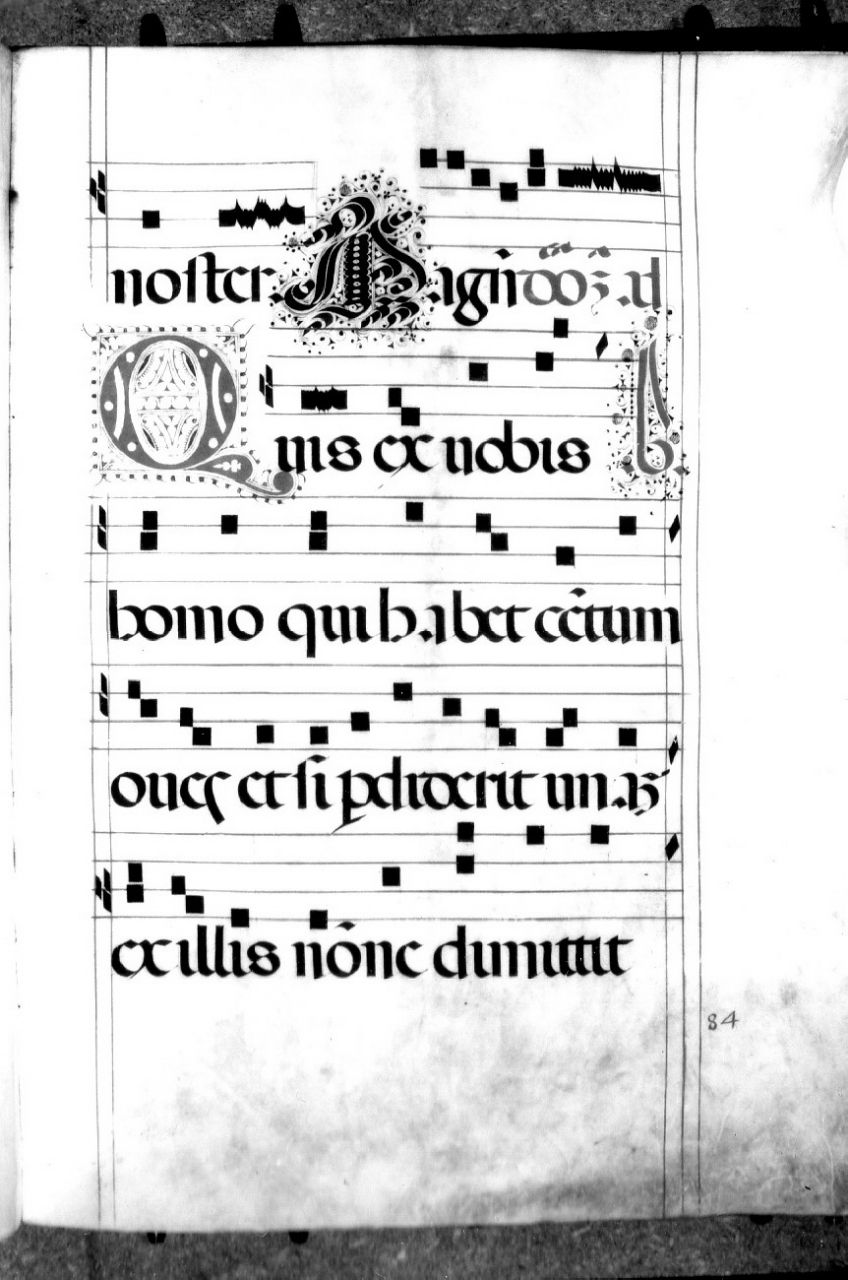 noster. Magn̄ dōoȝ̄ ad b
Quis ex uobis
homo qui habet cẽtum
oues et si pdiderit unaʒ
ex illis nõne dimittit
84